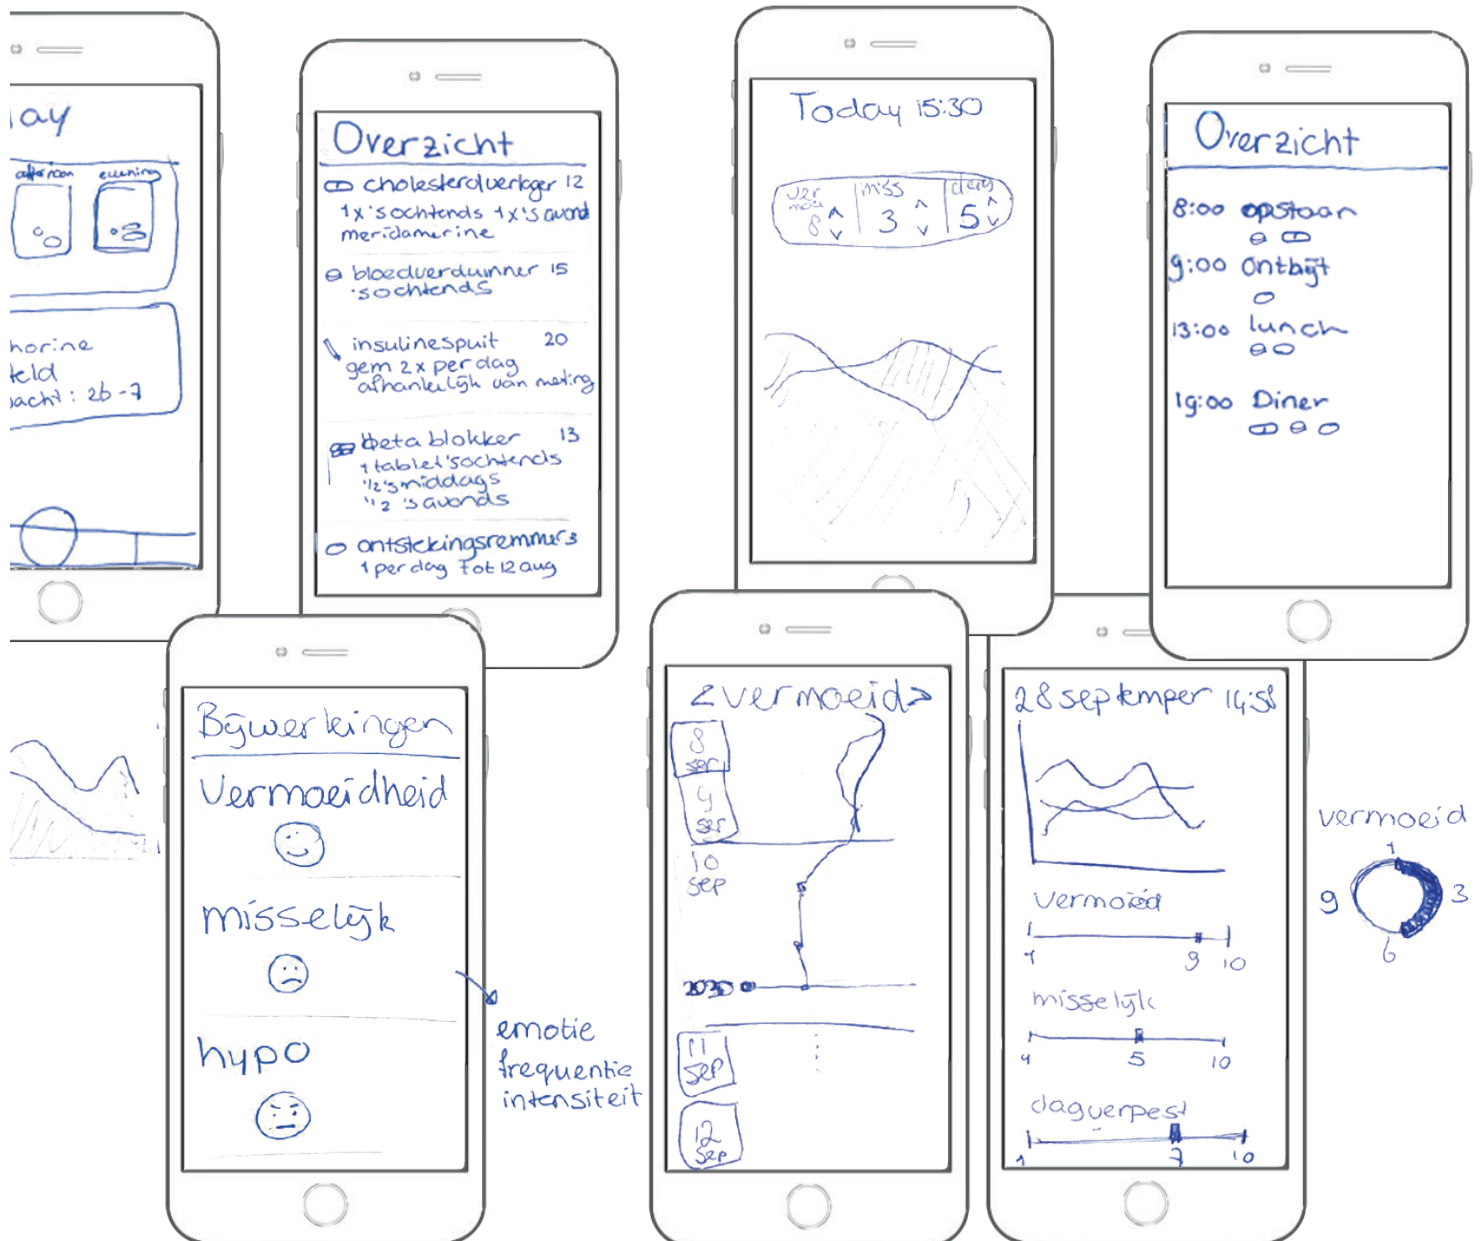 ay
afternoon evening
horine
teld
acht : 26-7
Overzicht
cholesterolverlager 12
1x 's ochtends 1x 's avond
meridamerine
bloedverdunner 15
's ochtends
insulinespuit 20
gem 2x per dag
afhankelijk van meting
beta blokker 13
1 tablet 's ochtends
1/2 's middags
1/2 's avonds
ontstekingsremmer 3
1 per dag Tot 12 aug
Today 15:30
ver miss dag
moei
8 3 5
Overzicht
8:00 opstaan
9:00 Ontbijt
13:00 lunch
19:00 Diner
Bijwerkingen
Vermoeidheid
misselijk
hypo
emotie
frequentie
intensiteit
<vermoeid>
8
sep
9
sep
10
sep
11
sep
12
sep
28 septemper 14:58
vermoeid
1 9 10
misselijk
1 5 10
dagverpest
1 7 10
vermoeid
1
9 3
6